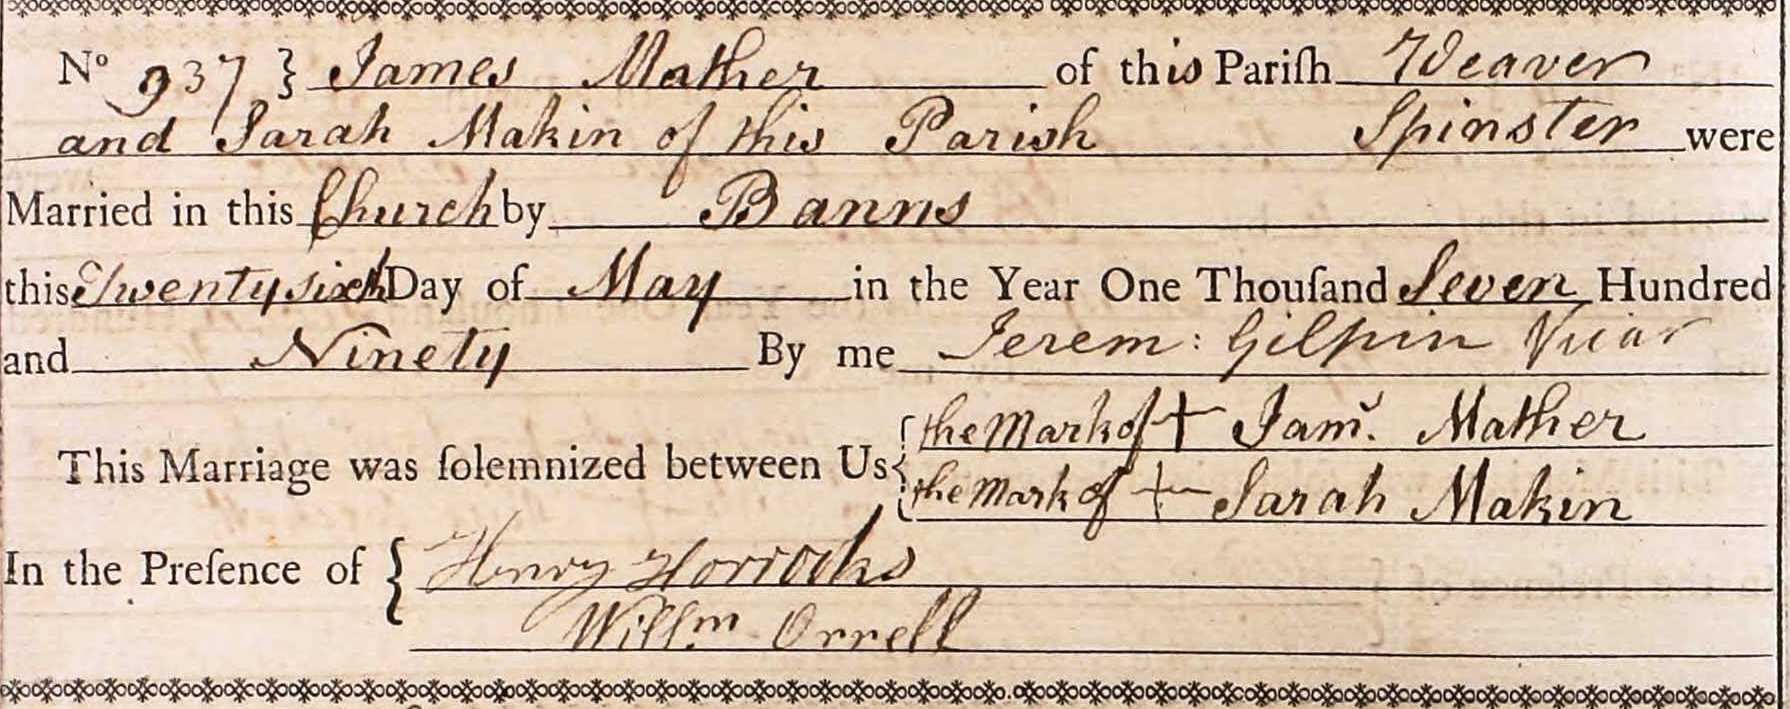 No 937 } James Mather of this Pariſh Weaver
and Sarah Makin of this Parish Spinster were
Married in this Church by Banns
this Twenty sixth Day of May in the Year One Thouſand Seven Hundred
and Ninety By me Jerem: Gilpin Vicar
This Marriage was ſolemnized between Us { the Mark of + Jams. Mather
the Mark of + Sarah Makin
In the Preſence of { Henry Horrocks
Willm Orrell